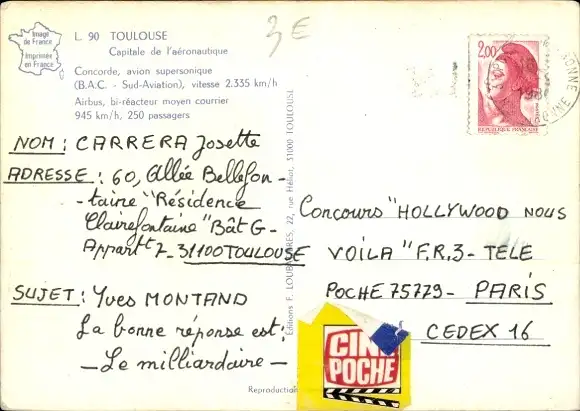 3€
Image
de France
Imprimée
en France
L. 90 TOULOUSE
Capitale de l'aéronautique
Concorde, avion supersonique
(B.A.C. - Sud-Aviation), vitesse 2.335 km/h
Airbus, bi-réacteur moyen courrier
945 km/h, 250 passagers
NOM : CARRERA Josette
ADRESSE : 60, Allée Bellefon-
-taine "Résidence
Clairefontaine" Bât G-
Appart^t 7_ 31100 TOULOUSE
SUJET : Yves MONTAND
La bonne réponse est :
_ Le milliardaire _
Editions F. LOUBATIÈRES, 22, rue Héliot, 31000 TOULOUSE
Reproduction
2,00
REPUBLIQUE FRANÇAISE
Concours "HOLLYWOOD NOUS
VOILA" F.R.3- TELE
POCHE 75779- PARIS
CEDEX 16
CINE
POCHE